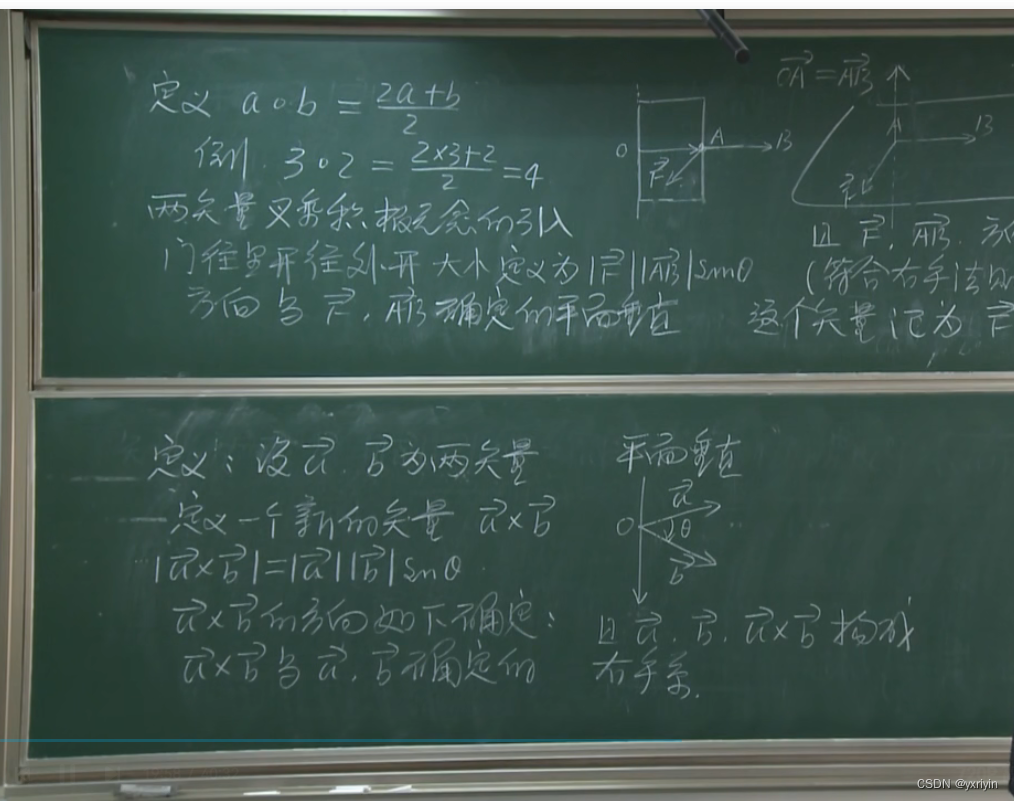 定义 a∘b = (2a+b)/2
例. 3∘2 = (2×3+2)/2 = 4
两矢量叉乘积概念的引入
门往里开往外开 大小定义为|F⃗||AB⃗|sinθ
方向与 F⃗, AB⃗确定的平面垂直
O A B
F⃗
OA⃗ = AB⃗
A B
F⃗
且 F⃗, AB⃗.
(符合右手法则
这个矢量记为 F⃗
定义: 设a⃗. b⃗为两矢量
定义一个新的矢量 a⃗×b⃗
|a⃗×b⃗|=|a⃗||b⃗|sinθ.
a⃗×b⃗的方向如下确定:
a⃗×b⃗与a⃗. b⃗确定的
平面垂直
a⃗
O θ
b⃗
且 a⃗. b⃗. a⃗×b⃗ 构成
右手系.
CSDN @yxriyin